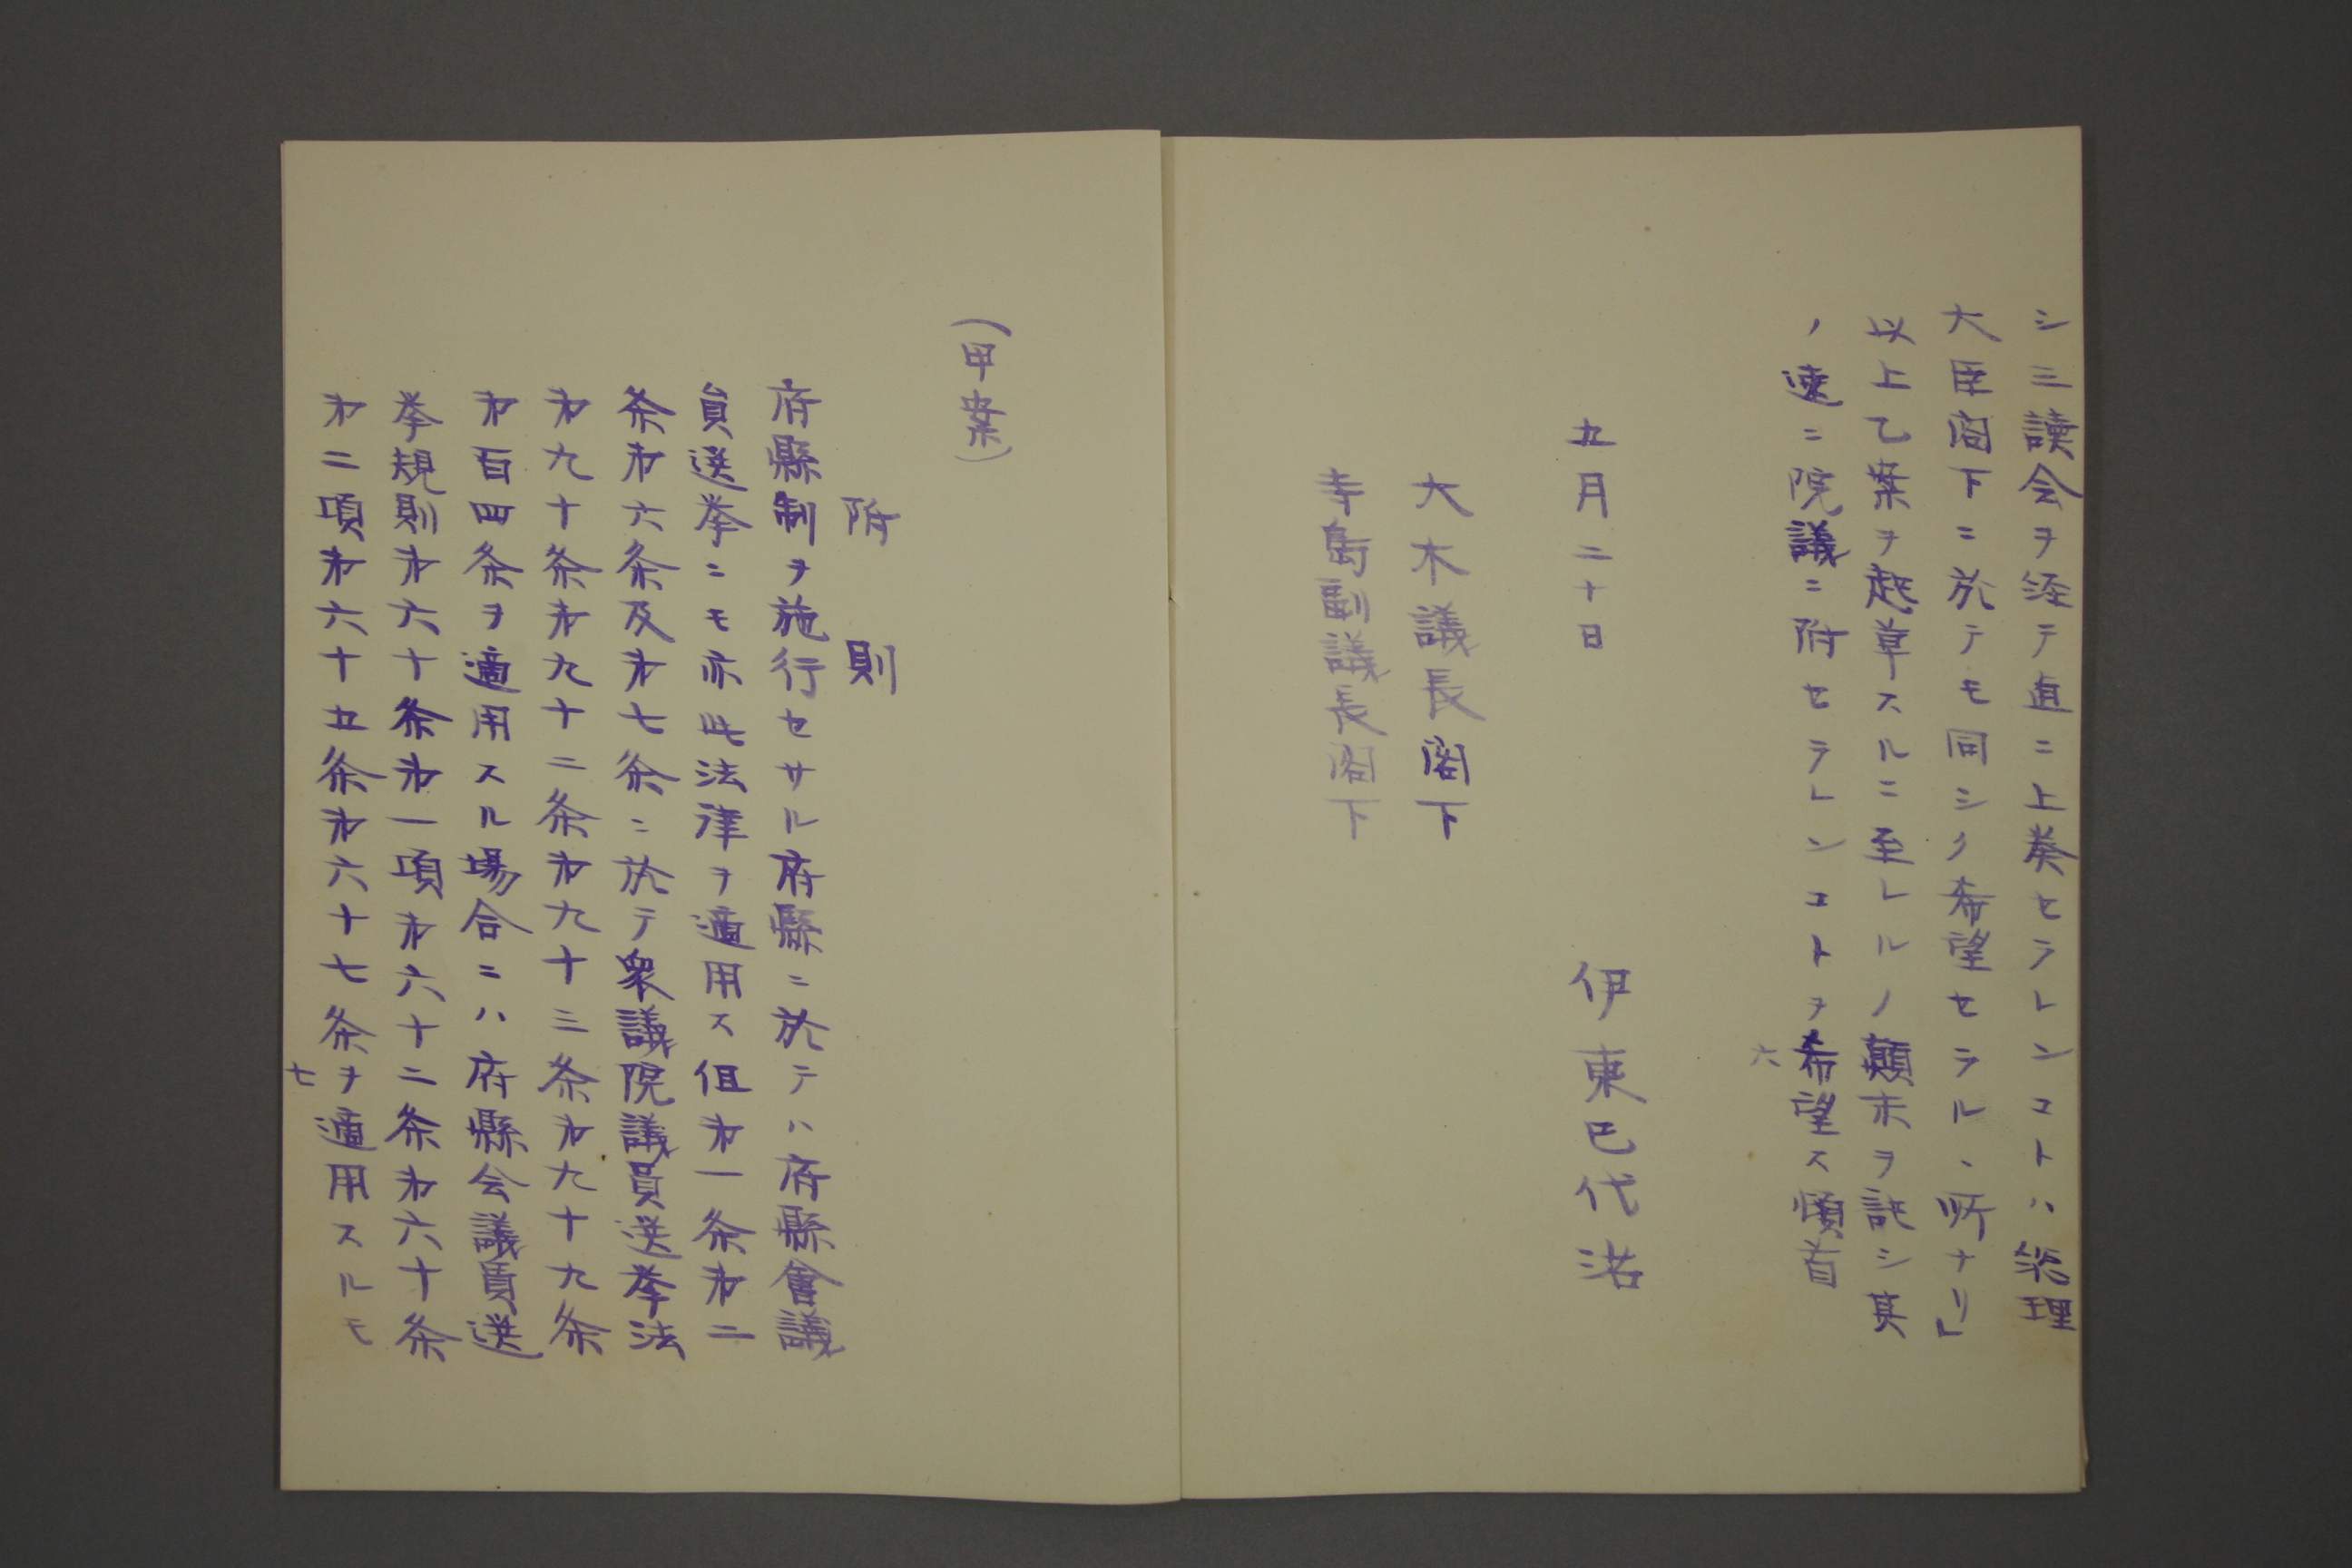 シ三讀会ヲ経テ直ニ上奏セラレンコトハ総理
大臣閣下ニ於テモ同シク希望セラルヽ所ナリ」
以上乙案ヲ起草スルニ至レルノ顛末ヲ記シ其
ノ速ニ院議ニ附セラレンコトヲ希望ス頓首
六
五月二十日
伊東巳代治
大木議長閣下
寺島副議長閣下
(甲案)
附則
府縣制ヲ施行セサル府縣ニ於テハ府縣會議
員選挙ニモ亦此法律ヲ適用ス但㐧一条㐧二
条㐧六条及㐧七条ニ於テ衆議院議員選挙法
㐧九十条㐧九十二条㐧九十三条㐧九十九条
㐧百四条ヲ適用スル場合ニハ府縣会議員選
挙規則㐧六十条㐧一項㐧六十二条㐧六十条
㐧二項㐧六十五条㐧六十七条ヲ適用スルモ
七